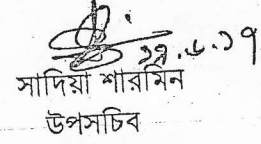 ১৯.৬.১৭
সাদিয়া শারমিন
উপসচিব